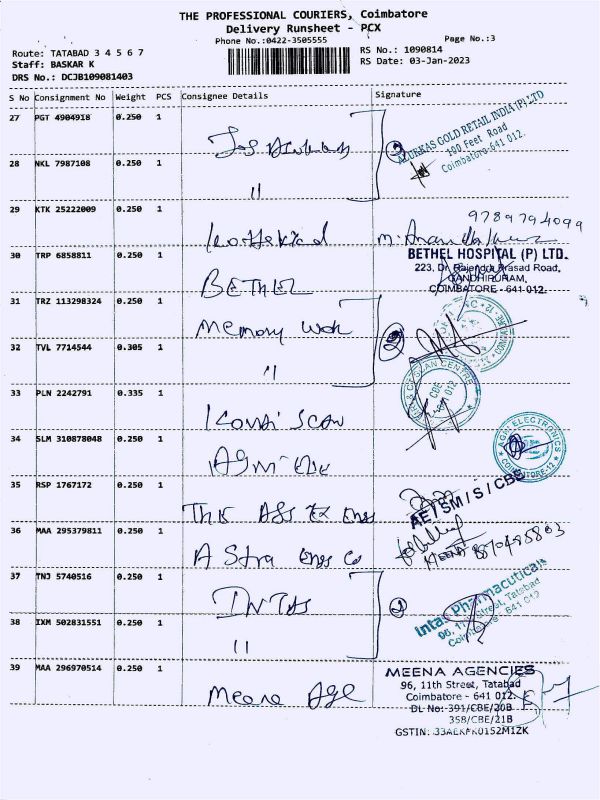 THE PROFESSIONAL COURIERS, Coimbatore
Delivery Runsheet - PCX
Phone No.:0422-3505555
Page No.:3
Route: TATABAD 3 4 5 6 7
RS No.: 1090814
Staff: BASKAR K
RS Date: 03-Jan-2023
DRS No.: DCJB109081403
S No Consignment No Weight PCS Consignee Details Signature
27 PGT 4904918 0.250 1
AZURKAS GOLD RETAIL INDIA (P) LTD
100 Feet Road
Coimbatore-641 012.
2
28 NKL 7987108 0.250 1
"
29 KTK 25222009 0.250 1
9789794099
30 TRP 6858811 0.250 1
BETHEL
BETHEL HOSPITAL (P) LTD.
223, Dr. Rajendra Prasad Road,
GANDHIPURAM,
COIMBATORE - 641 012.
31 TRZ 113298324 0.250 1
Memory
2
32 TVL 7714544 0.305 1
"
33 PLN 2242791 0.335 1
Kovai Scan
SCAN CENTRE
CBE
641 012
34 SLM 310878048 0.250 1
AGNI ELECTRONICS
COIMBATORE-12
35 RSP 1767172 0.250 1
AE / SM / S / CBE
36 MAA 295379811 0.250 1
Astra Engg Co
37 TNJ 5740516 0.250 1
INTAS
2
Intas Pharmaceuticals
96, 11th Street, Tatabad
Coimbatore - 641 012
38 IXM 502831551 0.250 1
"
39 MAA 296970514 0.250 1
Meena Age
MEENA AGENCIES
96, 11th Street, Tatabad
Coimbatore - 641 012.
DL No:-391/CBE/20B
358/CBE/21B
GSTIN: 33AEKPK0152M1ZK